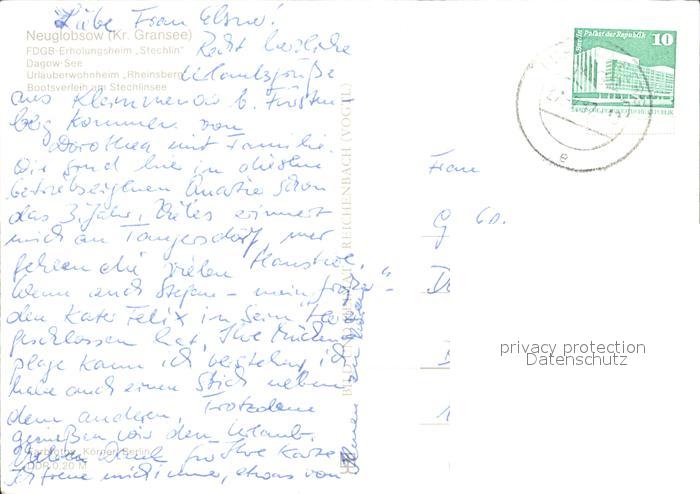 Liebe Frau Elsner!
Neuglobsow (Kr. Gransee)
FDGB-Erholungsheim „Stechlin"
Dagow-See
Urlauberwohnheim „Rheinsberg"
Bootsverleih am Stechlinsee
Recht herzliche
Urlaubsgrüße
aus Kleinmenow b. Fürsten-
berg kommen von
Dorothea mit Familie.
Wir sind hier in diesem
betriebseignen Quartier schon
das 3. Jahr. Vieles erinnert
mich an Tangersdorf, nur
fehlen die vielen Haustiere.
Wenn auch Stefan – mein "großer" –
den Kater Felix in sein Herz
geschlossen hat. Ihre Mücken-
plage kann ich verstehen, ich
habe auch einen Stich neben
dem anderen. Trotzdem
genießen wir den Urlaub.
Vielen Dank für Ihre Karte.
Ich freue mich immer, etwas von
Ihnen zu hören
Körner, Berlin
DDR 0,20 M
REICHENBACH (VOGTL)
Palast der Republik
10
e
Frau
G
privacy protection
Datenschutz